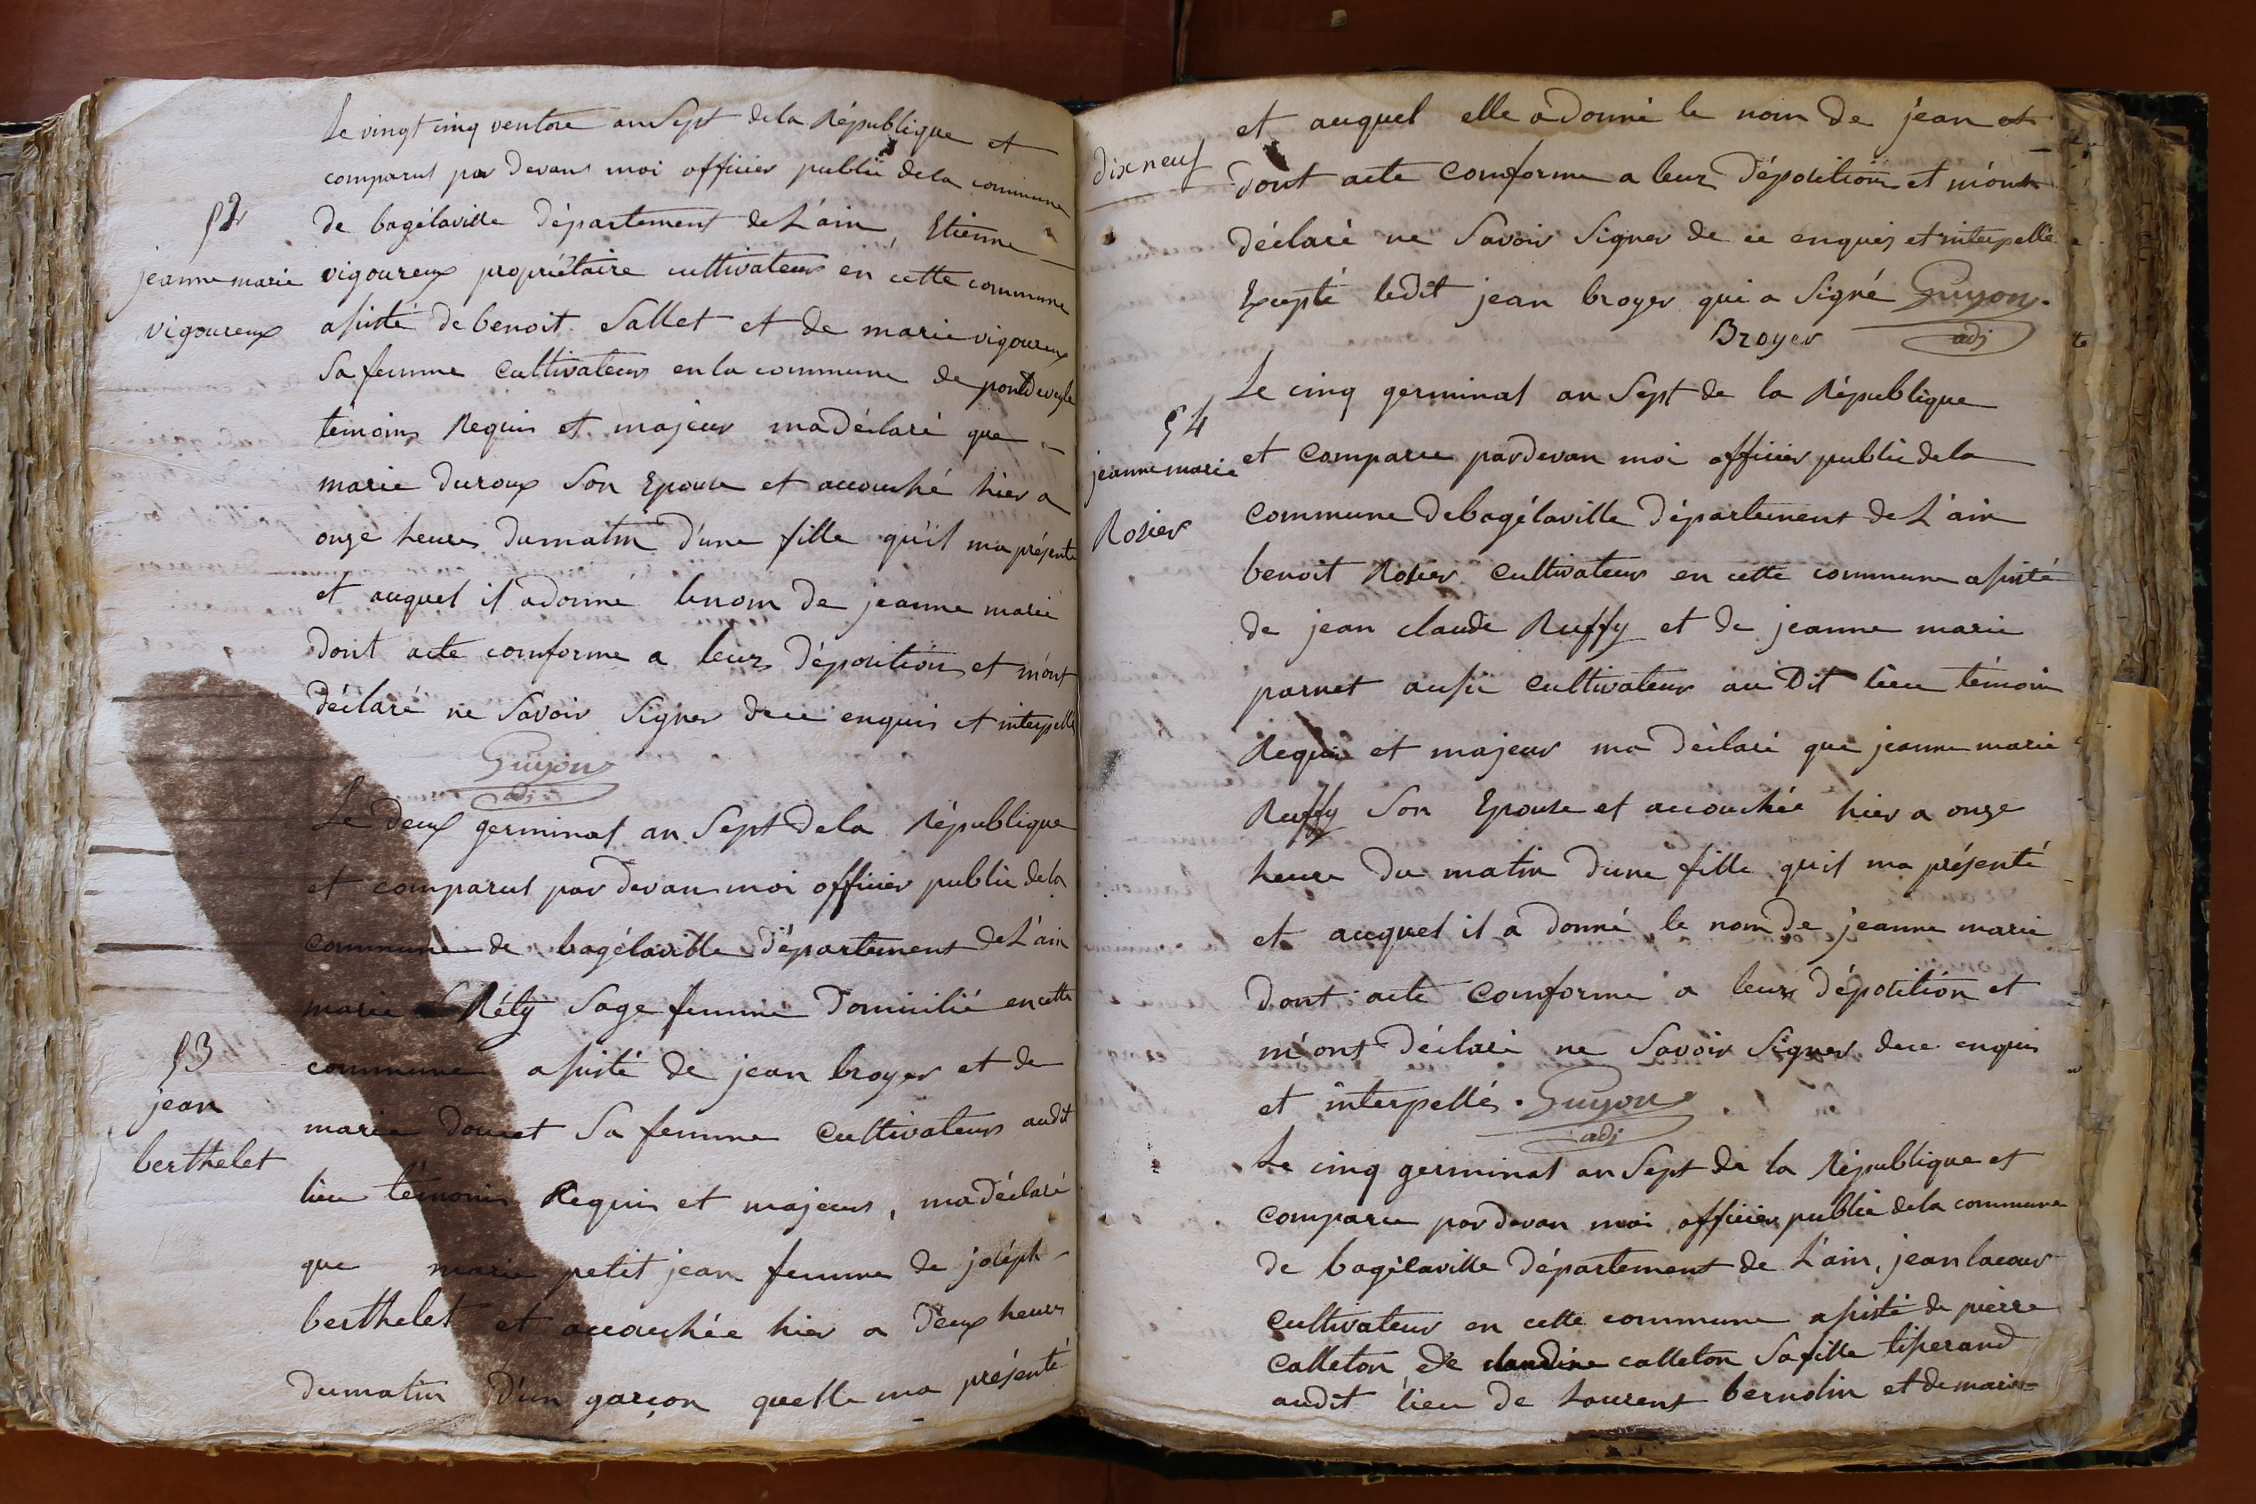 Le vingt cinq ventose an Sept dela République et
comparut par devans moi officier public dela commune
de bagélaville département de L'ain, Etienne
52
jeanne marie
vigoureux
vigoureux propriétaire cultivateur en cette commune
assisté de benoit Sallet et de marie vigoureux
Sa femme Cultivateurs en la commune de pontdeveyle
témoins Requis et majeur ma déclaré que
marie duroux Son Epouse et accouché hier a
onze heures dumatin d'une fille qu'il ma présenté
et auquel il adonné lenom de jeanne marie
dont acte comforme a leurs déposition et m'ont
déclaré ne Savoir Signer dece enquis et interpellé
Guyon
adj
Le deux germinal an Sept dela République
et comparut par devan moi officier public dela
commune de bagélaville département de L'ain
marie Rély Sage femme domicilié en cette
53
jean
berthelet
commune assisté de jean broyer et de
marie doucet Sa femme Cultivateurs audit
lieu témoins Requis et majeurs, ma déclaré
que marie petit jean femme de joséph
berthelet et accouchée hier a deux heures
dumatin d'un garçon quelle ma présenté
dix neuf
et auquel elle adonné le nom de jean et
dont acte Comforme a leur déposition et m'ont
déclaré ne Savoir Signer de ce enquis et interpellé
Excepté ledit jean broyer qui a Signé Guyon
Broyer adj
Le cinq germinal an Sept de la République
54
jeanne marie
Rosier
et Comparu pardevan moi officier public dela
commune debagélaville département de L'ain
benoit Rosier Cultivateur en cette commune assisté
de jean claude Ruffy et de jeanne marie
parnet aussi Cultivateur au Dit lieu témoin
Requis et majeur ma déclaré que jeanne marie
Ruffy Son Epouse et accouchée hier a onze
heure du matin dune fille quil ma présenté
et auquel il a donné le nom de jeanne marie
Dont acte Comforme a leurs déposition et
m'ont déclaré ne Savoir Signer dece enquis
et interpellés. Guyon
adj
Le cinq germinal an Sept de la République et
comparu par devan moi officier public dela commune
de bagélaville département de L'ain, jean lacour
Cultivateur en cette commune assisté de pierre
Calleton de claudine calleton Sa fille tisserand
audit lieu de Laurent bernolin et de marie